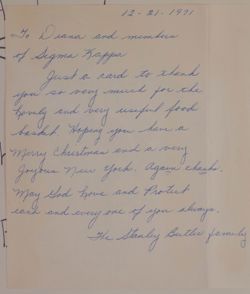 12-21-1971
To Diana and members
of Sigma Kappa
Just a card to thank
you so very much for the
lovely and very useful food
basket. Hoping you have a
Merry Christmas and a very
Joyous New York. Again thanks.
May God love and Protect
each and every one of you always.
The Stanley Butler family